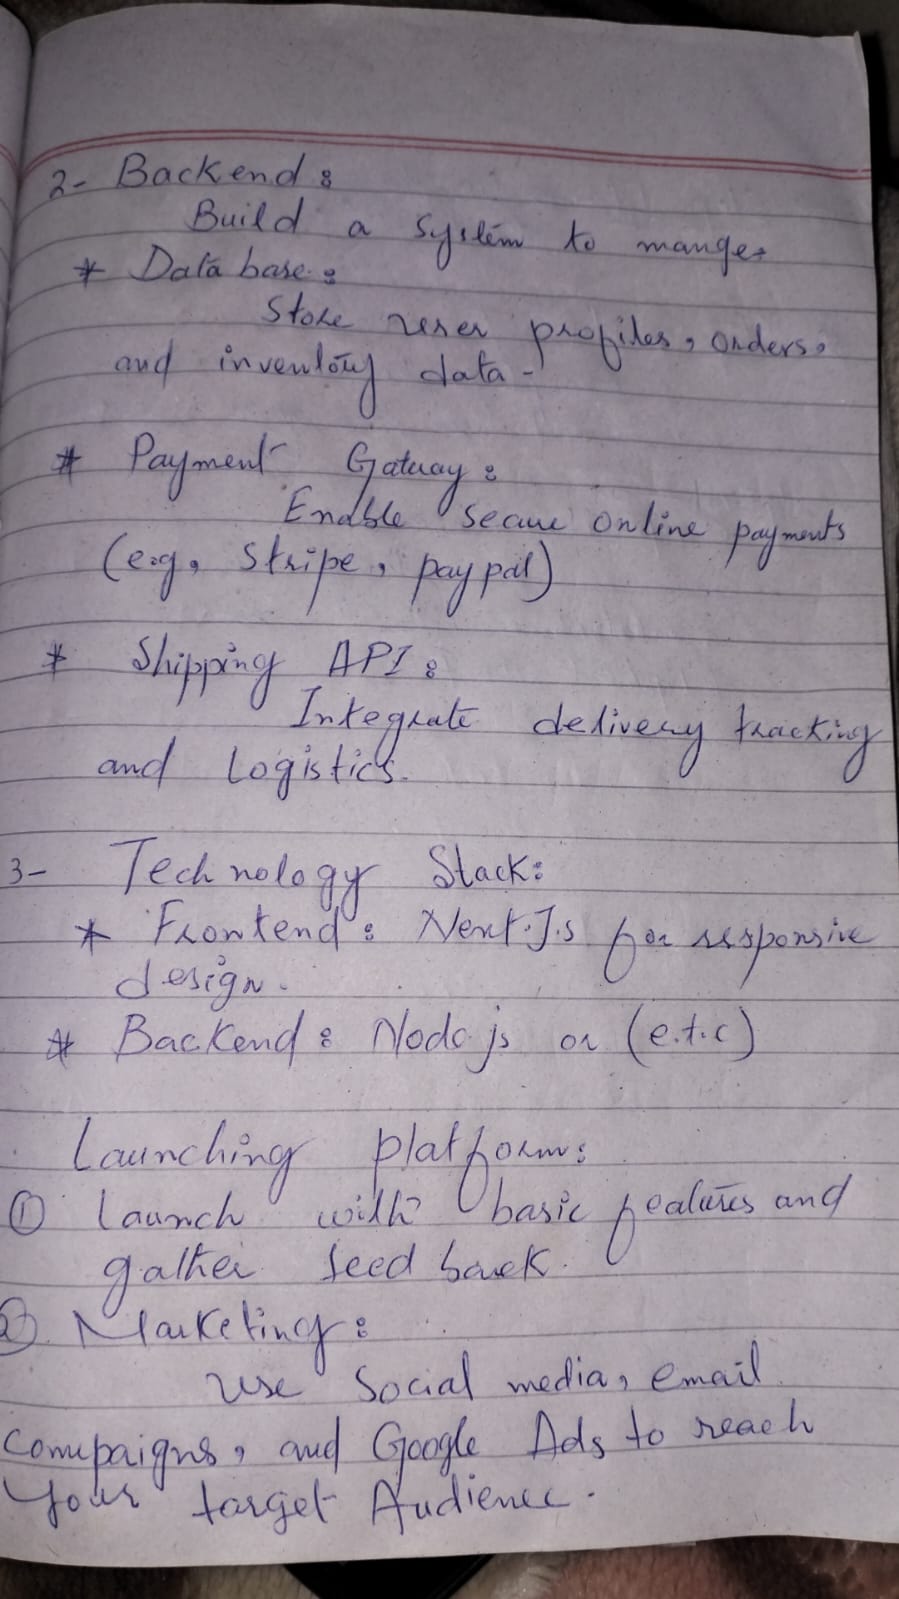 2- Backend :
Build a system to mange.
* Data base :
Store user profiles, orders,
and inventory data -
* Payment Gatway :
Enable secure online payments
(e.g, Stripe, paypal)
* Shipping API :
Integrate delivery tracking
and Logistics.
3- Technology Stack:
* Frontend : Next.J.s for responsive
design.
* Backend : Node.js or (e.t.c)
Launching platform:
① Launch with basic features and
gather feed back.
② Marketing :
Use Social media, email
Compaigns, and Google Ads to reach
Your target Audience.